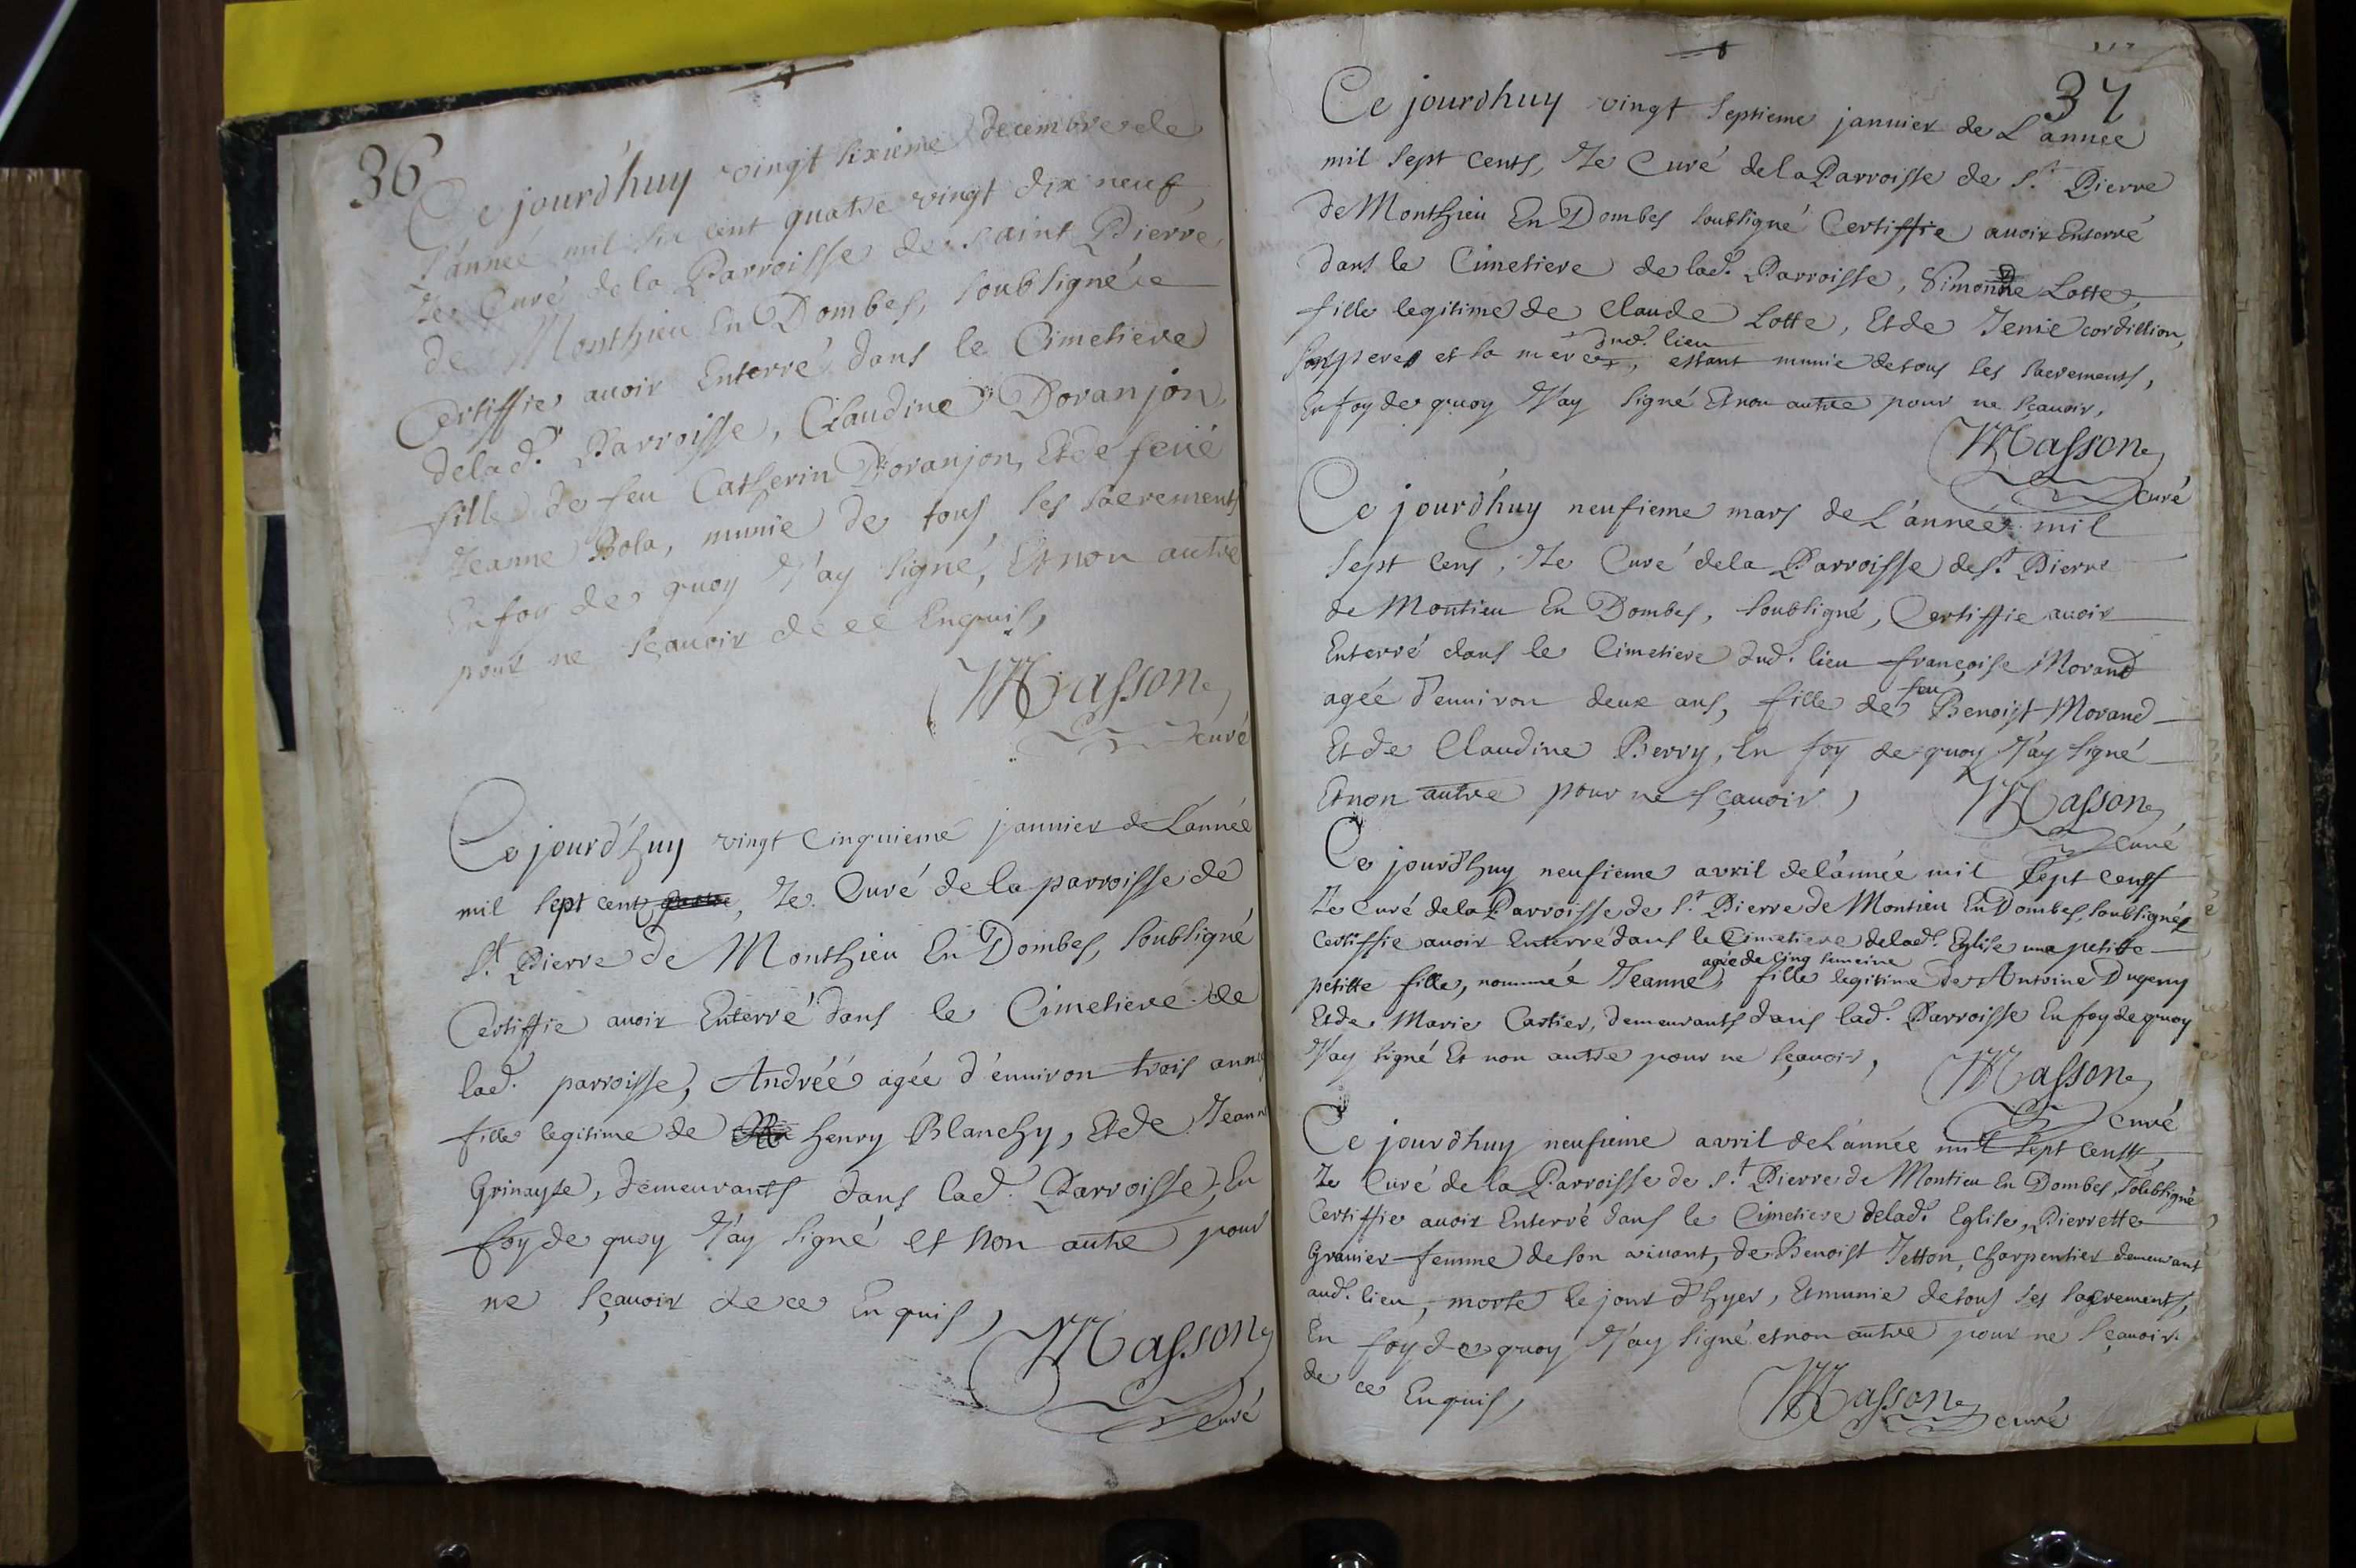 36
Ce jourd'huy vingt sixieme decembre de
L'année mil six cent quatre vingt dix neuf,
Je Curé de la Parroisse de Saint Pierre
de Monthieu En Dombes, soubsigné
Certiffie avoir Enterré dans le Cimetiere
de lad. Parroisse, Claudine Doranjon,
fille de feu Catherin Doranjon, Et de feüe
Jeanne Bola, munie de tous ses sacrements
En foy de quoy J'ay signé, Et non autre
pour ne sçavoir de ce Enquis,
Masson
curé
Ce jourd'huy vingt cinquieme janvier de L'année
mil sept cent, Je Curé de la parroisse de
St. Pierre de Monthieu En Dombes, soubsigné
Certiffie avoir Enterré dans le Cimetiere de
lad. parroisse, Andréé agée d'environ trois anné
fille legitime de henry Blanchy, Et de Jeann
Grinayse, demeurants dans lad. Parroisse, En
foy de quoy J'ay signé et non autre pour
ne sçavoir de ce Enquis,
Masson
curé
37
Ce jourdhuy vingt septieme janvier de L'année
mil sept cents, Je Curé de la Parroisse de St. Pierre
de Monthieu En Dombes soubsigné Certiffie avoir Enterré
dans le Cimetiere de lad. Parroisse, Simonde Lotte,
fille legitime de Claude Lotte, Et de Jenie cordillion,
dud. lieu
son pere et sa mere, estant munie de tous ses sacrements,
En foy de quoy J'ay signé Et non autre pour ne sçavoir,
Masson
curé
Ce jourd'huy neufieme mars de L'année mil
sept cens, Je Curé de la Parroisse de St. Pierre
de Montieu En Dombes, soubsigné, Certiffie avoir
Enterré dans le Cimetiere dud. lieu françoise Morand
agée d'environ deux ans, fille de feu Benoist Morand
Et de Claudine Berry, En foy de quoy J'ay signé
Et non autre pour ne sçavoir,
Masson
curé
Ce jourdhuy neufieme avril de l'année mil sept cents
Je Curé de la Parroisse de St. Pierre de Montieu En Dombes, soubsigné
Certiffie avoir Enterré dans le Cimetiere de lad. Eglise une petitte
agée de cinq semeine
petitte fille, nommée Jeanne, fille legitime de Antoine Dugeny
Et de Marie Cartier, demeurants dans lad. Parroisse En foy de quoy
J'ay signé Et non autre pour ne sçavoir,
Masson
curé
Ce jourdhuy neufieme avril de L'année mil sept cents,
Je Curé de la Parroisse de St. Pierre de Montieu En Dombes, soubsigné
Certiffie avoir Enterré dans le Cimetiere de lad. Eglise, Pierrette
Granier femme de son vivant, de Benoist Jetton, charpentier demeurant
aud. lieu, morte le jour d'hyer, Et munie de tous ses sacrements,
En foy de quoy J'ay signé et non autre pour ne sçavoir
de ce Enquis,
Masson curé